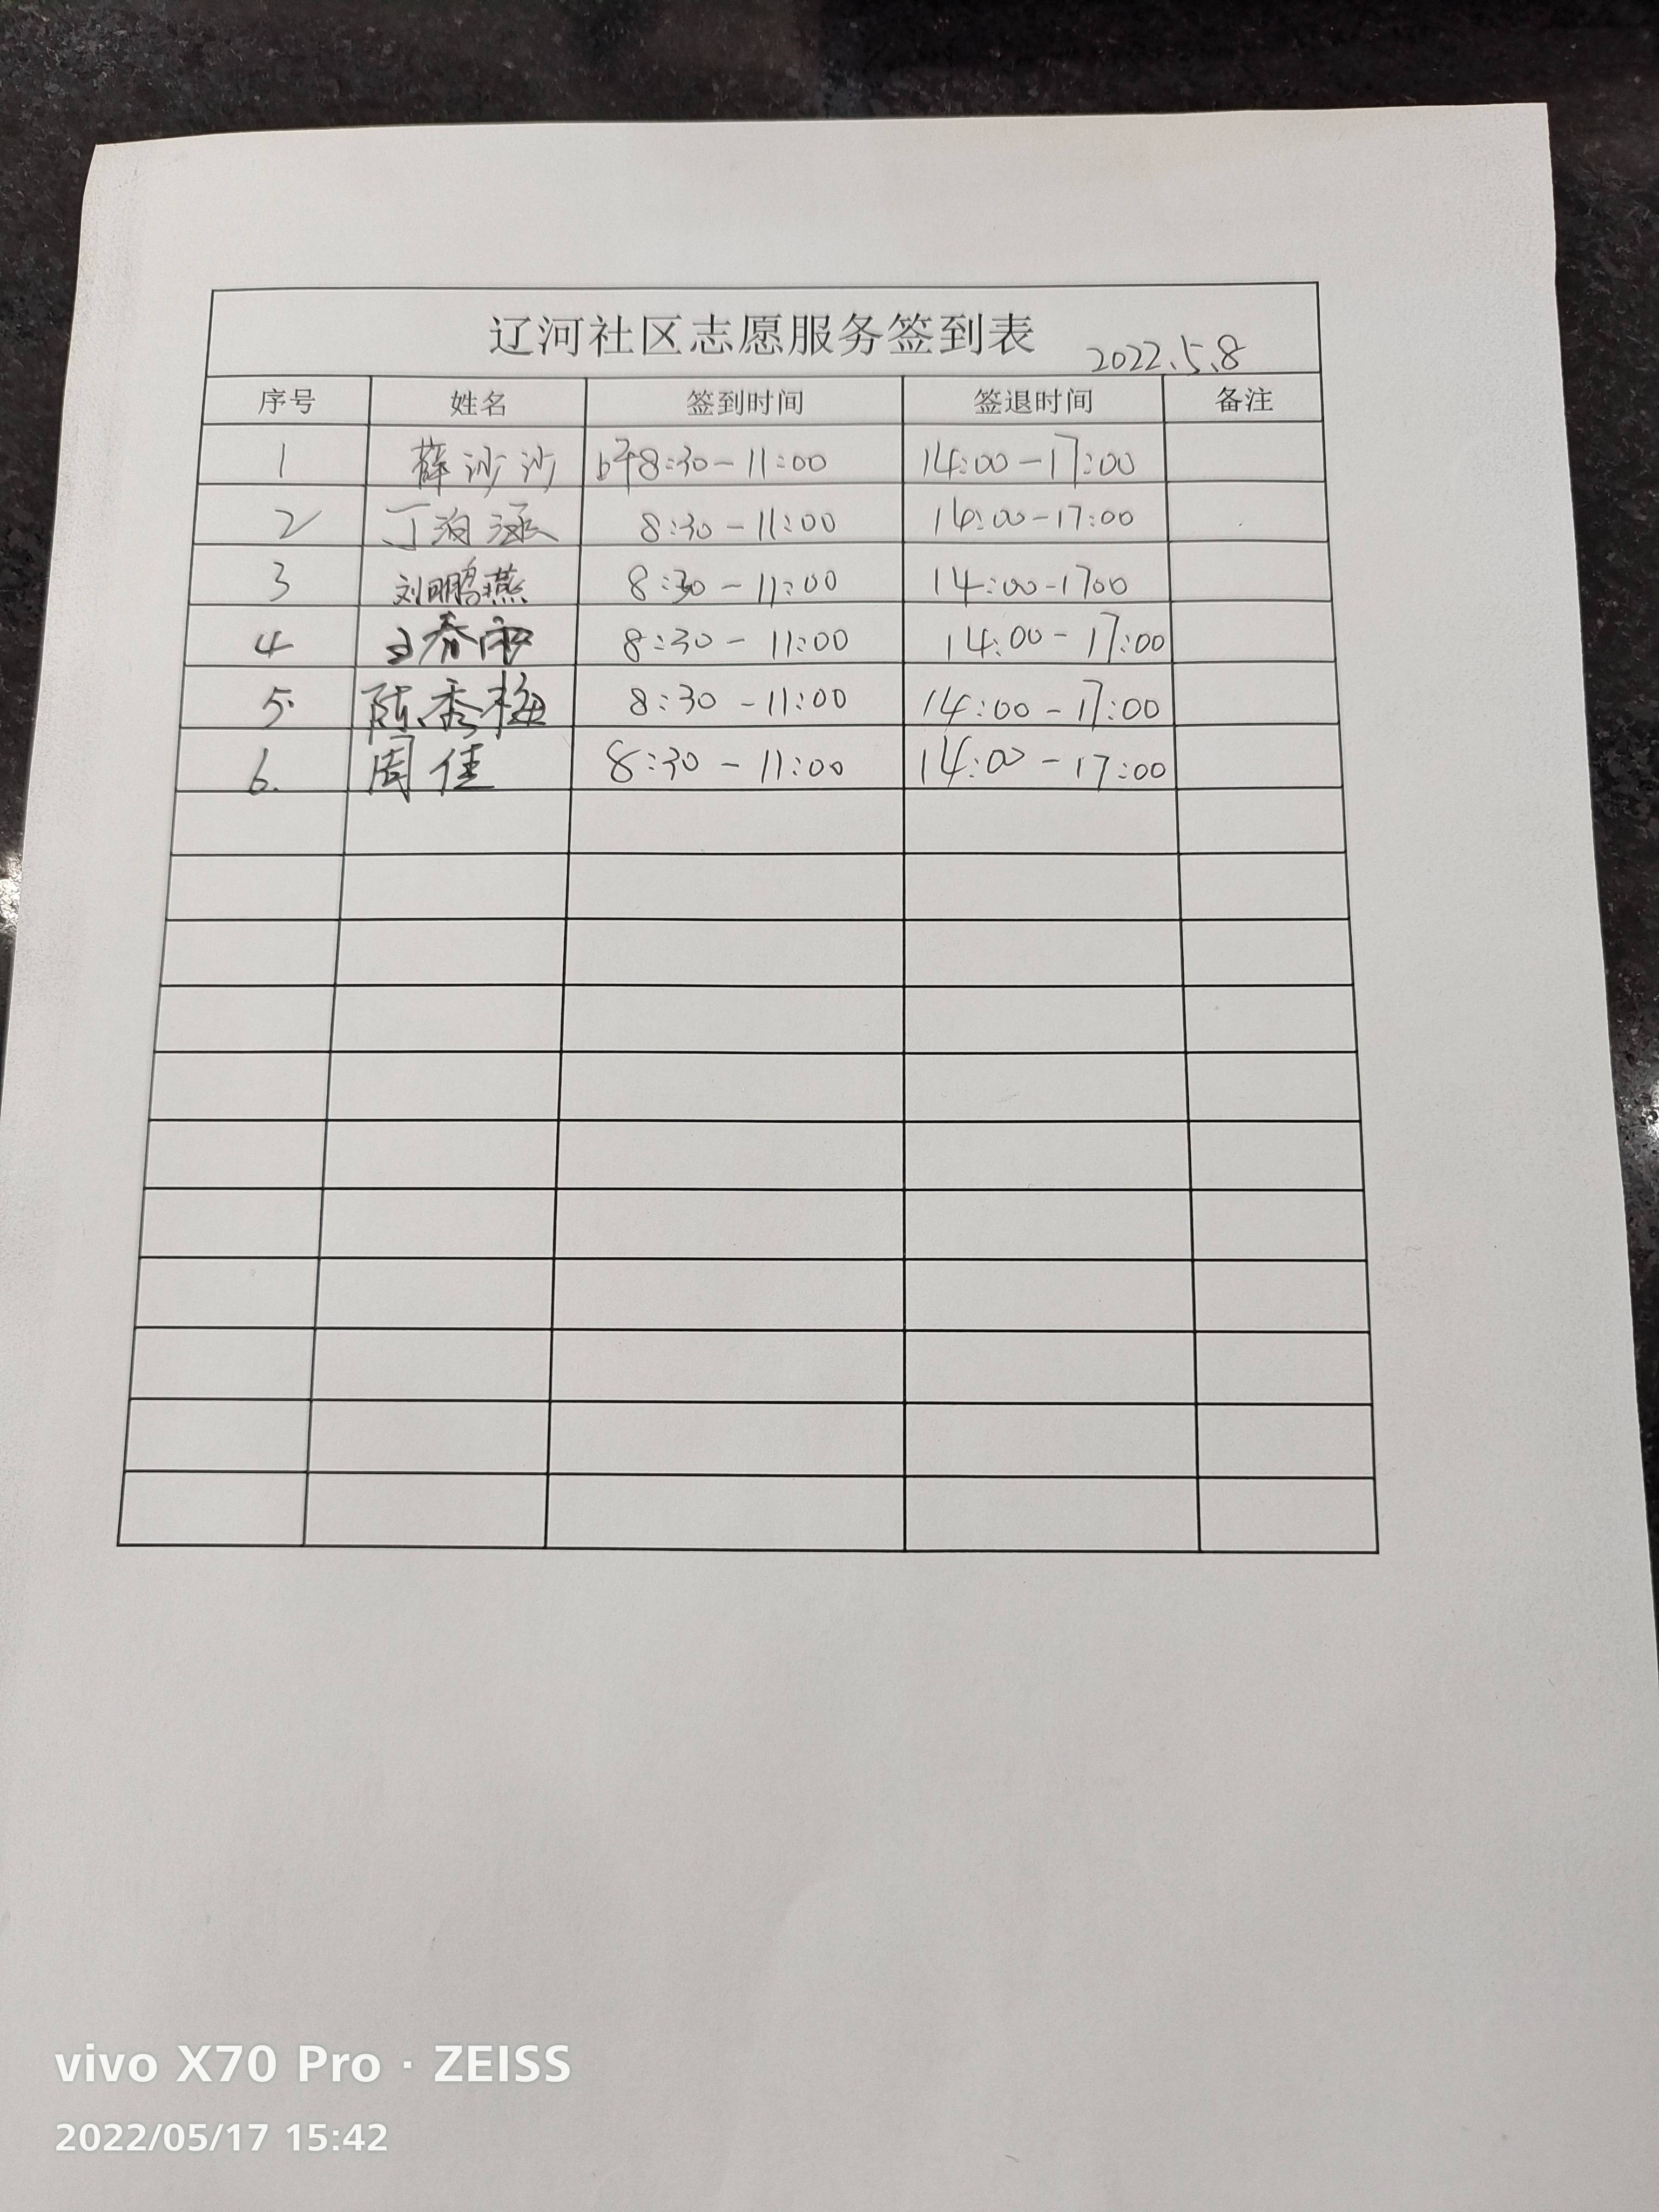 辽河社区志愿服务签到表 2022.5.8
序号 姓名 签到时间 签退时间 备注
1 薛沙沙 上午8:30-11:00 14:00-17:00
2 丁泊涵 8:30-11:00 14:00-17:00
3 刘鹏燕 8:30-11:00 14:00-1700
4 8:30-11:00 14:00-17:00
5. 陈秀梅 8:30-11:00 14:00-17:00
6. 周佳 8:30-11:00 14:00-17:00
vivo X70 Pro · ZEISS
2022/05/17 15:42